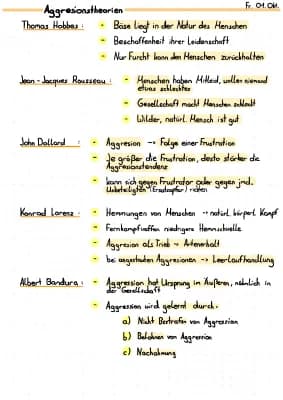 Aggresionstheorien
Fr. 01. Okt.
Thomas Hobbes : - Böse liegt in der Natur des Menschen
- Beschaffenheit ihrer Leidenschaft
- Nur Furcht kann den Menschen zurückhalten
Jean-Jacques Rousseau : - Menschen haben Mitleid, wollen niemand
etwas schlechtes
- Gesellschaft macht Menschen schlecht
- Wilder, natürl. Mensch ist gut
John Dollard : - Aggresion → Folge einer Frustration
- Je größer die Frustration, desto stärker die
Aggresionstendenz
- kann sich gegen Frustrator oder gegen jmd.
Unbeteiligten (Ersatzopfer) richten
Konrad Lorenz : - Hemmungen von Menschen → natürl. körperl. Kampf
- Fernkampfwaffen niedrigere Hemmschwelle
- Aggresion als Trieb → Arterhalt
- bei angestauten Aggresionen → Leerlaufhandlung
Albert Bandura : - Aggression hat Ursprung im Äußeren, nämlich in
der Gesellschaft
- Aggresion wird gelernt durch:
a) Nicht Bestrafen von Aggression
b) Belohnen von Aggression
c) Nachahmung